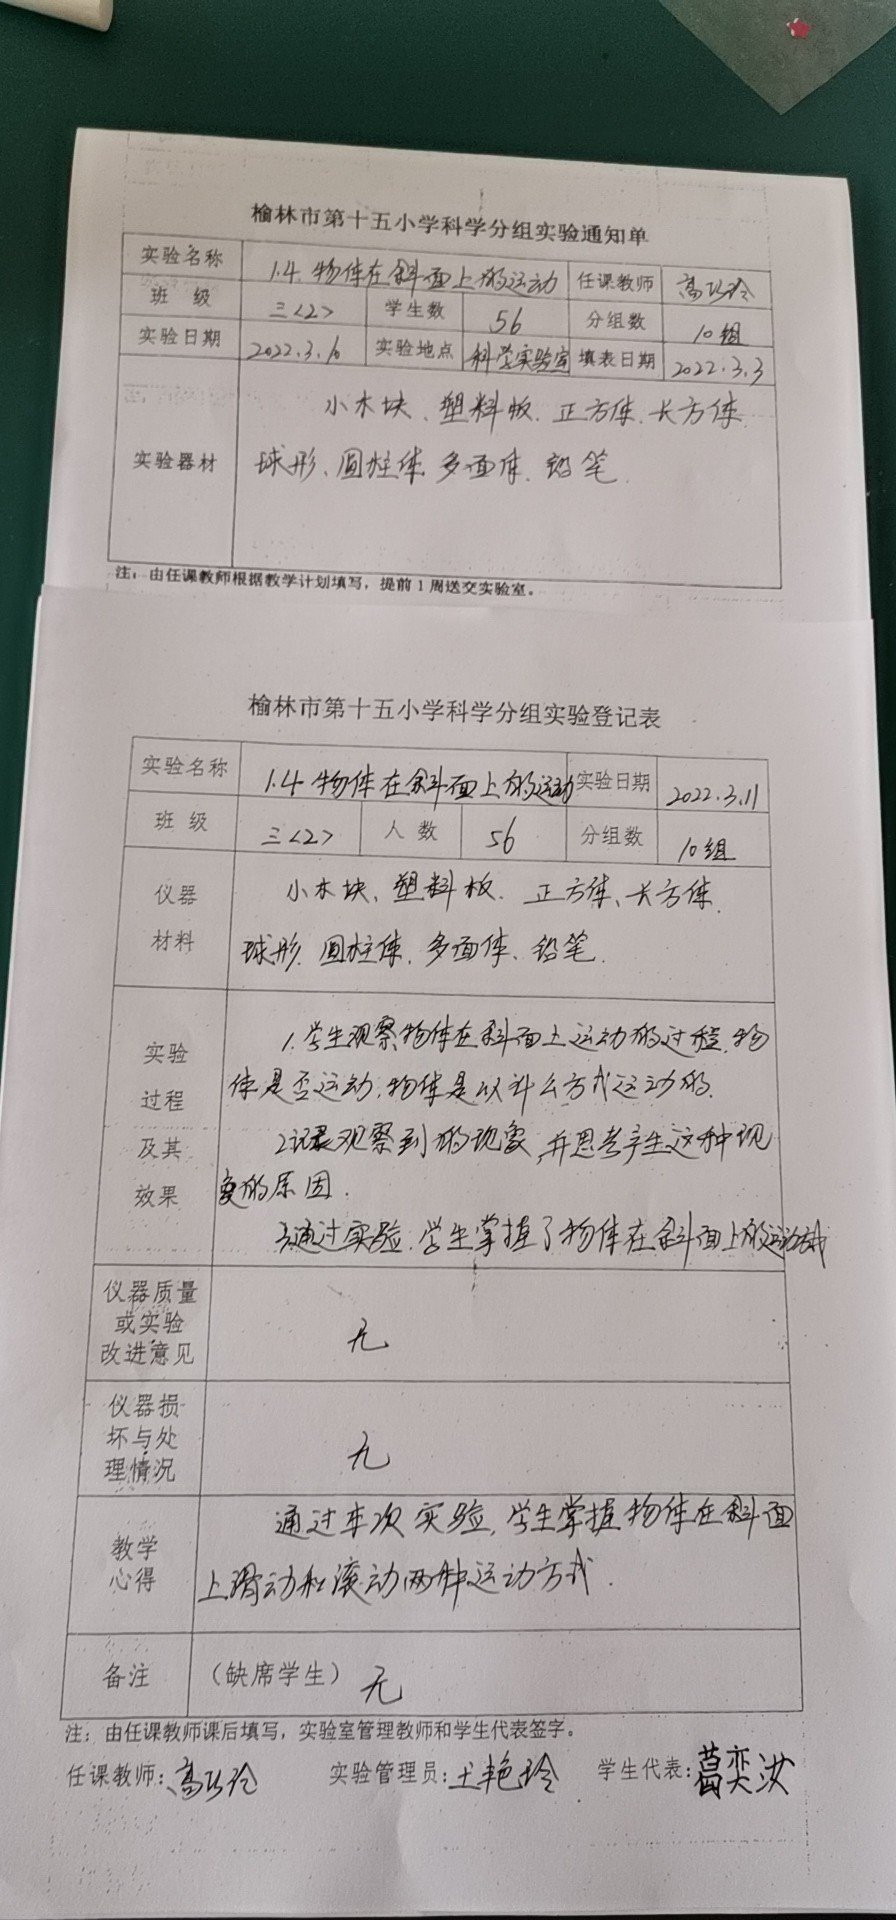 榆林市第十五小学科学分组实验通知单
实验名称 1.4 物体在斜面上的运动 任课教师 高巧玲
班 级 三<2> 学生数 56 分组数 10组
实验日期 2022.3.10 实验地点 科学实验室 填表日期 2022.3.3
小木块、塑料板、正方体、长方体、
实验器材 球形、圆柱体、多面体、铅笔.
注：由任课教师根据教学计划填写，提前1周送交实验室。
榆林市第十五小学科学分组实验登记表
实验名称 1.4 物体在斜面上的运动 实验日期 2022.3.11
班 级 三<2> 人 数 56 分组数 10组
仪器 小木块、塑料板、正方体、长方体.
材料 球形、圆柱体、多面体、铅笔.
1.学生观察物体在斜面上运动的过程,物
实验
体是否运动,物体是以什么方式运动的.
过程
2.记录观察到的现象,并思考产生这种现
及其
象的原因.
效果
3.通过实验,学生掌握了物体在斜面上的运动方式
仪器质量
或实验 无
改进意见
仪器损
坏与处 无
理情况
通过本次实验,学生掌握物体在斜面
教学
心得 上滑动和滚动两种运动方式.
备注 （缺席学生） 无
注：由任课教师课后填写，实验室管理教师和学生代表签字。
任课教师：高巧玲 实验管理员：王艳玲 学生代表：葛奕汝